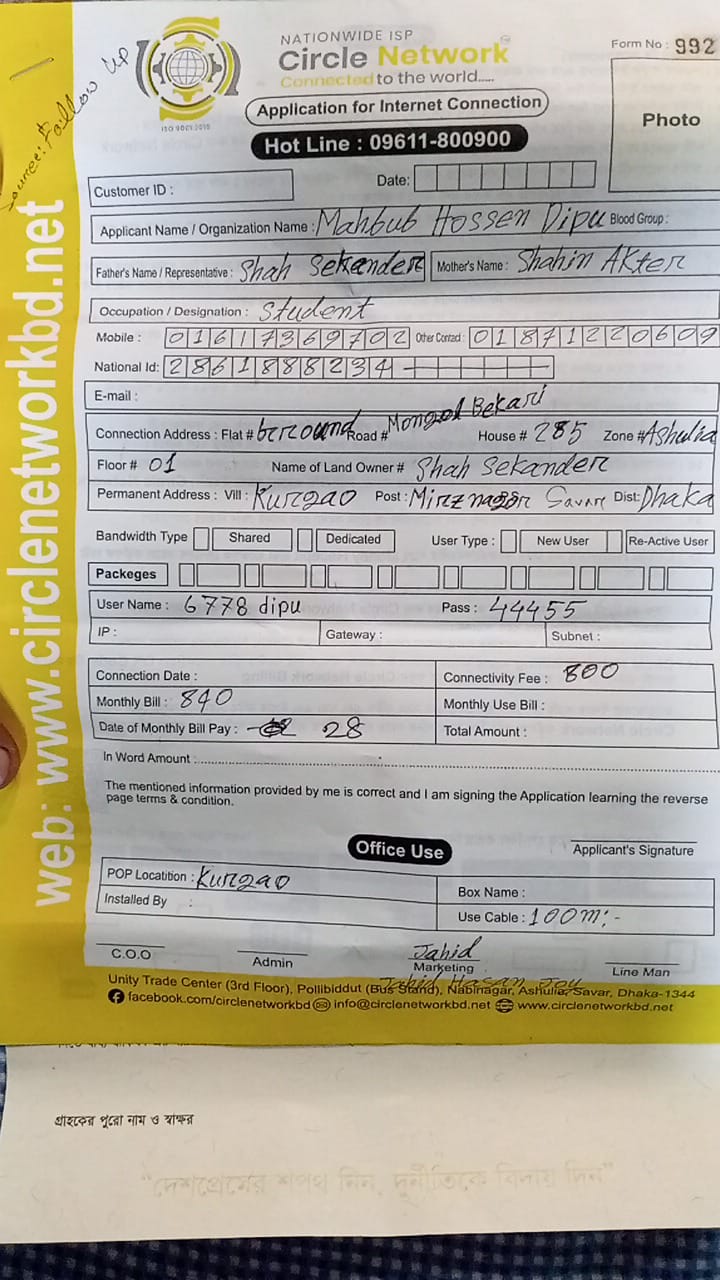 Source: Follow Up
NATIONWIDE ISP
Circle Network
Connected to the world.....
ISO 9001:2015
Form No : 992
Application for Internet Connection
Photo
Hot Line : 09611-800900
Customer ID :
Date:
Applicant Name / Organization Name : Mahbub Hossen Dipu Blood Group :
Father's Name / Representative : Shah Sekander Mother's Name : Shahin Akter
Occupation / Designation : Student
Mobile : 01617369702 Other Contact : 01871220609
National Id: 2861888234
E-mail :
Connection Address : Flat # Road # Mongol Bekari House # 285 Zone # Ashulia
Floor # 01 Name of Land Owner # Shah Sekander
Permanent Address : Vill : Kurgao Post : Mirznagor Savar Dist: Dhaka
Bandwidth Type Shared Dedicated User Type : New User Re-Active User
Packeges
User Name : 6778 dipu Pass : 44455
IP : Gateway : Subnet :
Connection Date : Connectivity Fee : 800
Monthly Bill : 840 Monthly Use Bill :
Date of Monthly Bill Pay : 28 Total Amount :
In Word Amount
The mentioned information provided by me is correct and I am signing the Application learning the reverse
page terms & condition.
Office Use
Applicant's Signature
POP Locatition : Kurgao
Box Name :
Installed By :
Use Cable : 100m:-
C.O.O Admin Jahid Marketing Line Man
Jahid Hasan Joy
Unity Trade Center (3rd Floor), Pollibiddut (Bus Stand), Nabinagar, Ashulia, Savar, Dhaka-1344
facebook.com/circlenetworkbd info@circlenetworkbd.net www.circlenetworkbd.net
web: www.circlenetworkbd.net
গ্রাহকের পুরো নাম ও স্বাক্ষর
"দেশপ্রেমের শপথ নিন, দুর্নীতিকে বিদায় দিন"